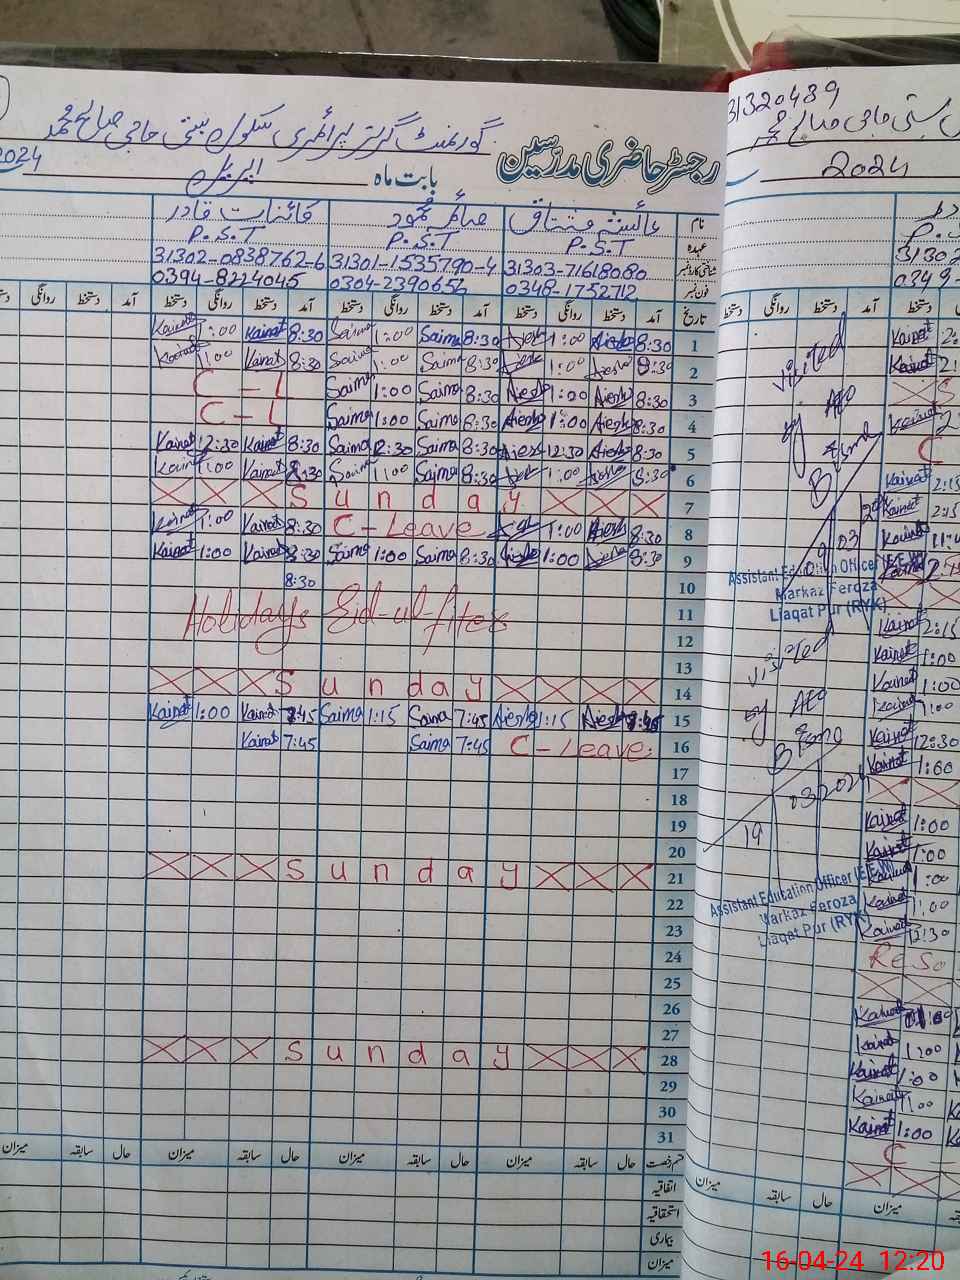 گورنمنٹ گرلز پرائمری سکول بستی حاجی صالح محمد
رجسٹر حاضری مدرسین
بابت ماہ اپریل 2024
نام عائشہ مشتاق صائمہ محمود کائنات قادر
عہدہ P.S.T P.S.T P.S.T
شناختی کارڈ نمبر 31303-71618080 31301-1535790-4 31302-0838762-6
فون نمبر 0348-1752712 0304-2390656 0394-8224045
تاریخ آمد دستخط روانگی دستخط آمد دستخط روانگی دستخط آمد دستخط روانگی دستخط آمد دستخط روانگی دستخط
Kainat 1:00 Kainat 8:30 Saima 1:00 Saima 8:30 Aiesha 1:00 Aiesha 8:30 1
Kainat 1:00 Kainat 8:30 Saima 1:00 Saima 8:30 Aiesha 1:00 Aiesha 8:30 2
C - L Saima 1:00 Saima 8:30 Aiesha 1:00 Aiesha 8:30 3
C - L Saima 1:00 Saima 8:30 Aiesha 1:00 Aiesha 8:30 4
Kainat 12:30 Kainat 8:30 Saima 12:30 Saima 8:30 Aiesha 12:30 Aiesha 8:30 5
Kainat 1:00 Kainat 8:30 Saima 1:00 Saima 8:30 Aiesha 1:00 Aiesha 8:30 6
Sunday 7
Kainat 1:00 Kainat 8:30 C - Leave Aiesha 1:00 Aiesha 8:30 8
Kainat 1:00 Kainat 8:30 Saima 1:00 Saima 8:30 Aiesha 1:00 Aiesha 8:30 9
8:30 10
Holidays Eid-ul-fiter 11
12
13
Sunday 14
Kainat 1:00 Kainat 7:45 Saima 1:15 Saima 7:45 Aiesha 1:15 Aiesha 7:45 15
Kainat 7:45 Saima 7:45 C - Leave 16
17
18
19
20
Sunday 21
22
23
24
25
26
27
Sunday 28
29
30
31
قسم رخصت حال سابقہ میزان حال سابقہ میزان حال سابقہ میزان حال سابقہ میزان
اتفاقیہ
استحقاقیہ
بیماری
میزان
31320489
بستی حاجی صالح محمد
2024
P.S
31302
0349-
دستخط روانگی دستخط آمد دستخط
Visited
by AEO
Assistant Education Officer (E.E.W)
Markaz Feroza
Liaqat Pur (RYK)
Visited
by AEO
19 03 2024
Assistant Education Officer (E.E.W)
Markaz Feroza
Liaqat Pur (RYK)
Kainat 2:15
Kainat 1:00
Kainat 1:00
Kainat 1:00
Kainat 12:30
Kainat 1:00
Kainat 1:00
Kainat 1:00
1:00
Kainat 1:00
Kainat 12:30
Kainat 1:00
Kainat 1:00
Kainat 1:00
Kainat 1:00
Kainat 1:00
C
میزان سابقہ حال میزان
16-04-24 12:20